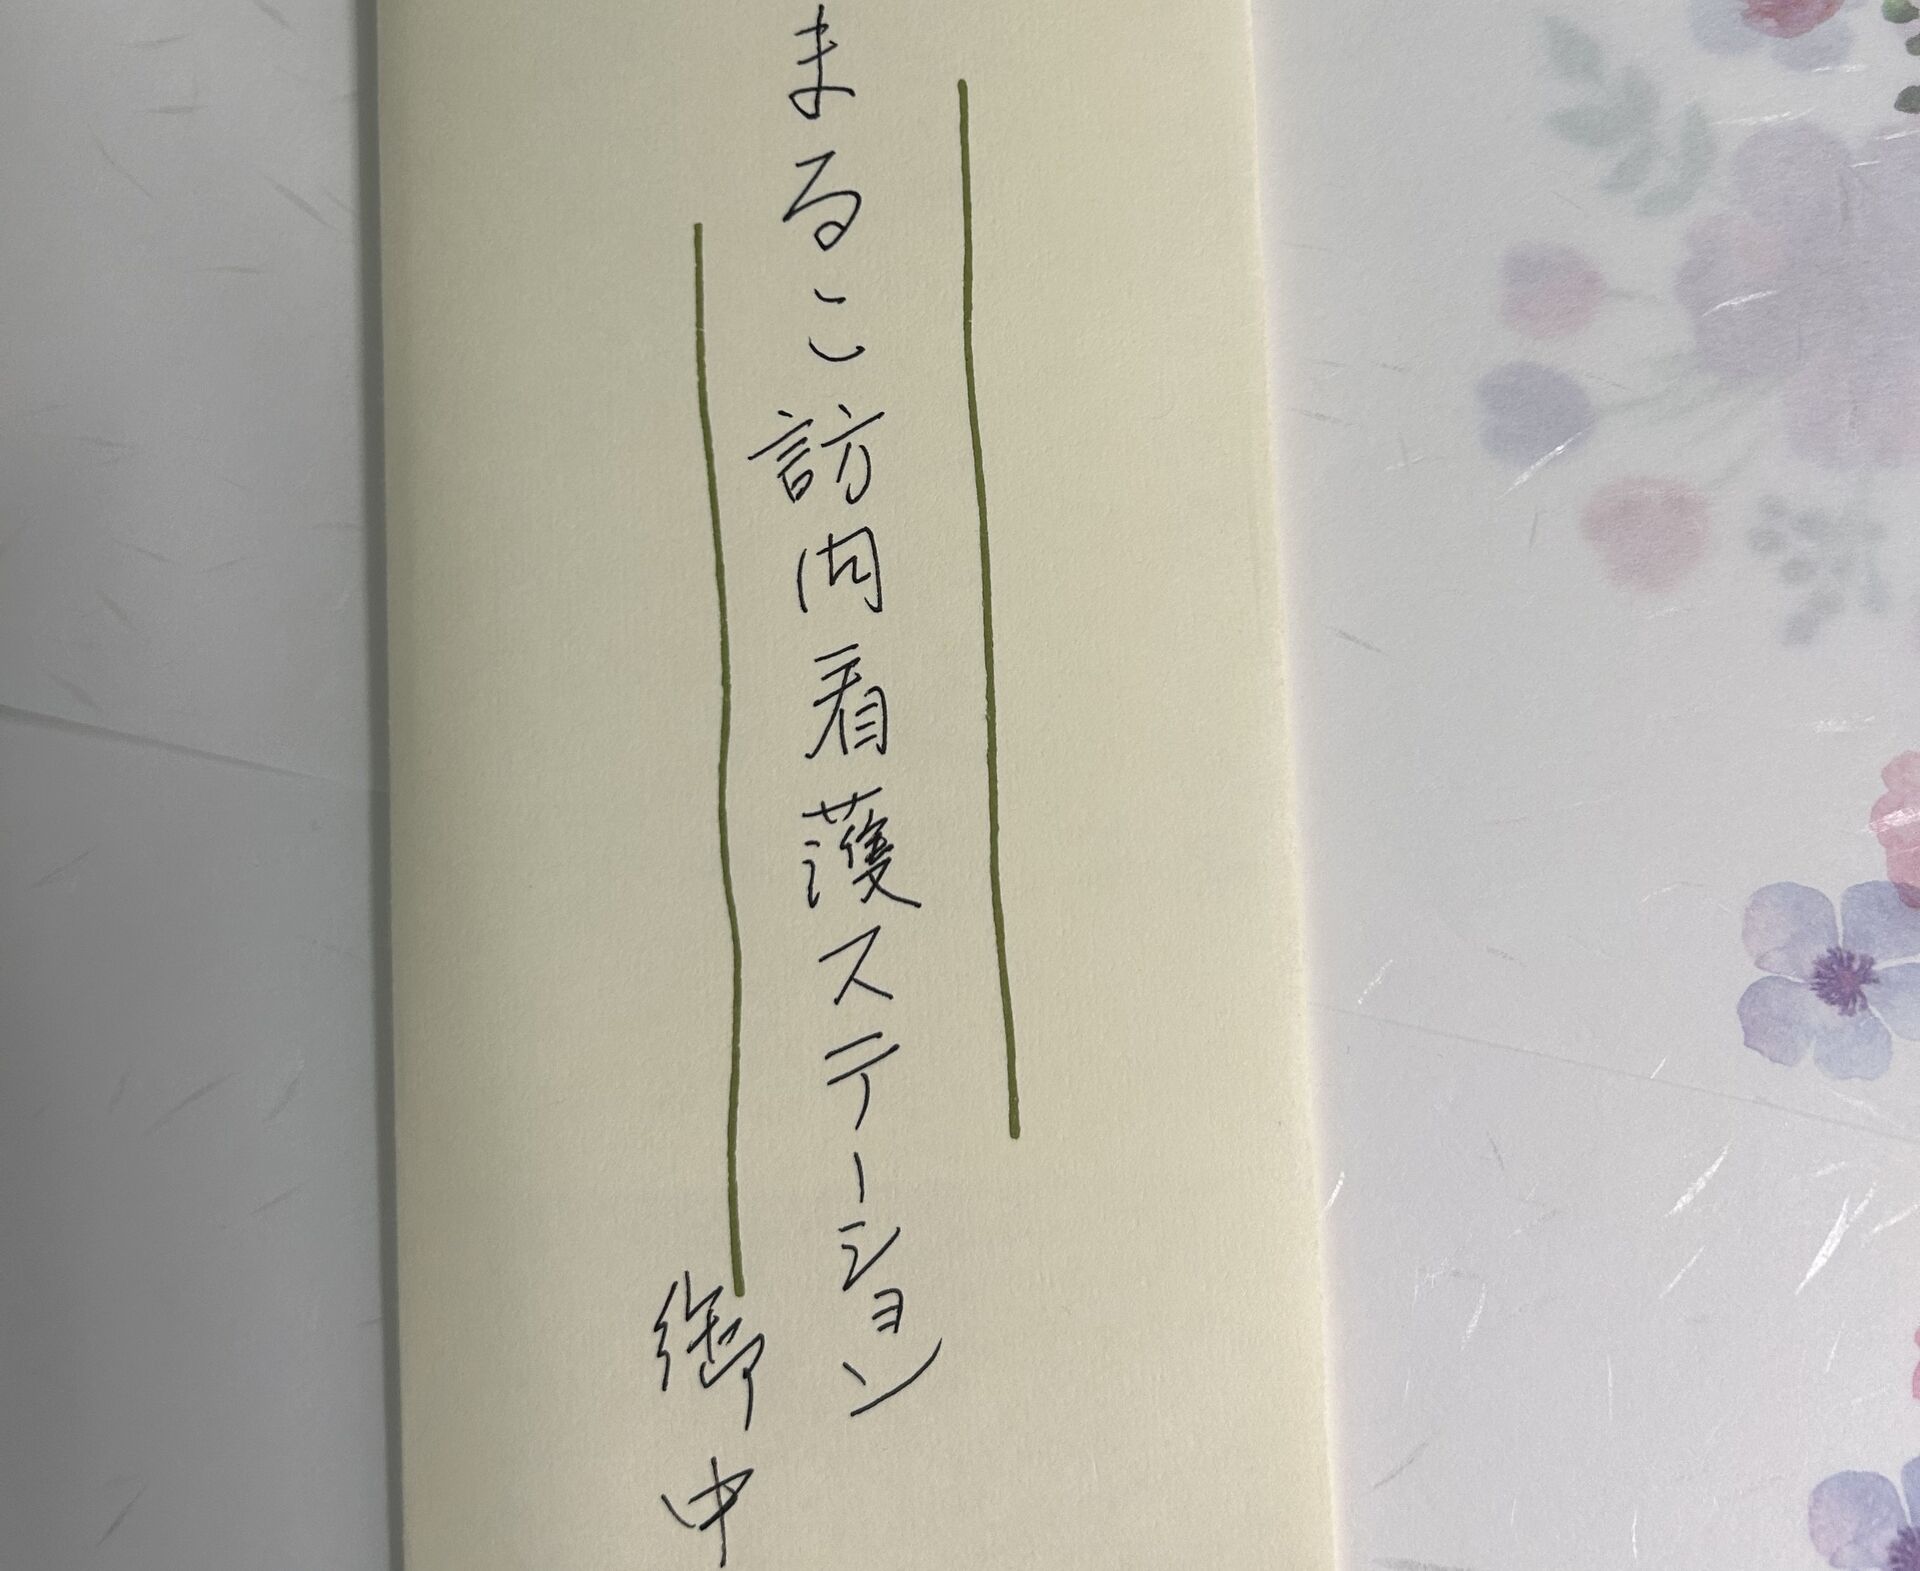 まるこ訪問看護ステーション
御中